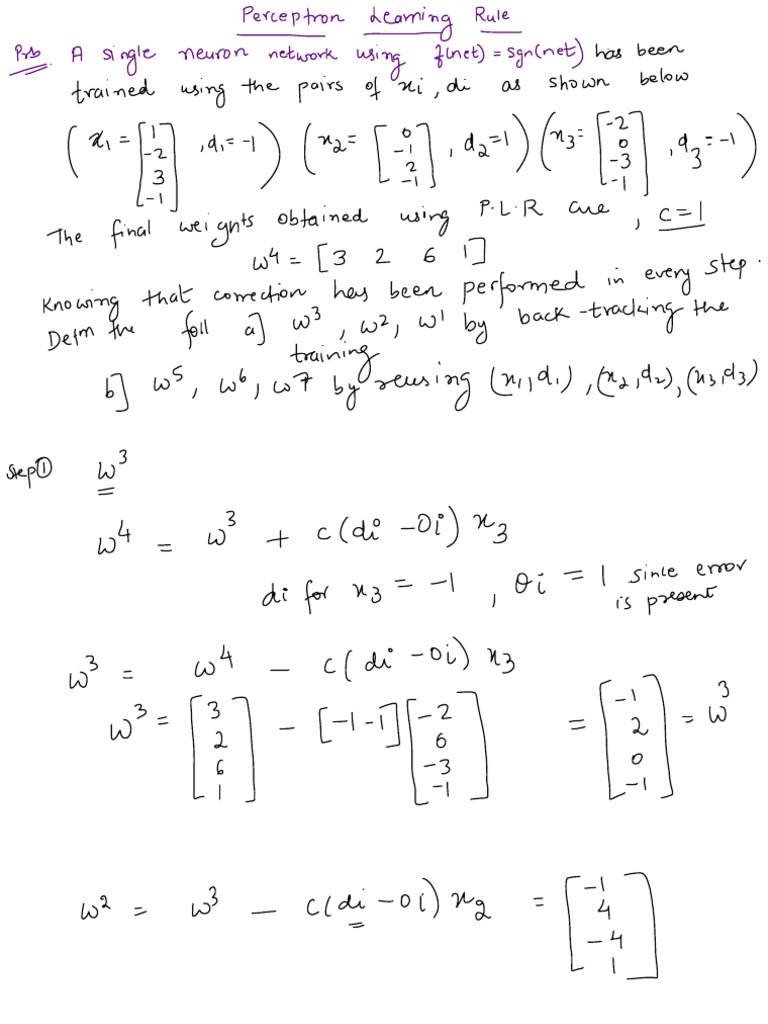 Perceptron Learning Rule
Prb. A single neuron network using f(net) = sgn(net) has been
trained using the pairs of xi, di as shown below
(x1 = [1 -2 3 -1], d1 = -1) (x2 = [0 -1 2 -1], d2 = 1) (x3 = [-2 0 -3 -1], d3 = -1)
The final weights obtained using P.L.R are, c = 1
w^4 = [3 2 6 1]
Knowing that correction has been performed in every step.
Detm the foll a] w^3, w^2, w^1 by back-tracking the
training
b] w^5, w^6, w^7 by reusing (x1,d1), (x2,d2), (x3,d3)
Step ① w^3
w^4 = w^3 + c(di - Oi) x3
di for x3 = -1, Oi = 1 since error
is present
w^3 = w^4 - c(di - Oi) x3
w^3 = [3 2 6 1] - [-1-1] [-2 0 -3 -1] = [-1 2 0 -1] = w^3
w^2 = w^3 - c(di - Oi) x2 = [-1 4 -4 1]